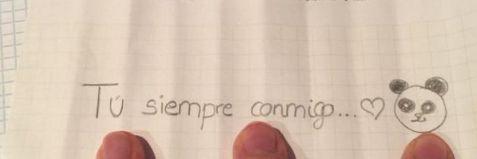 Tú siempre conmigo...♡